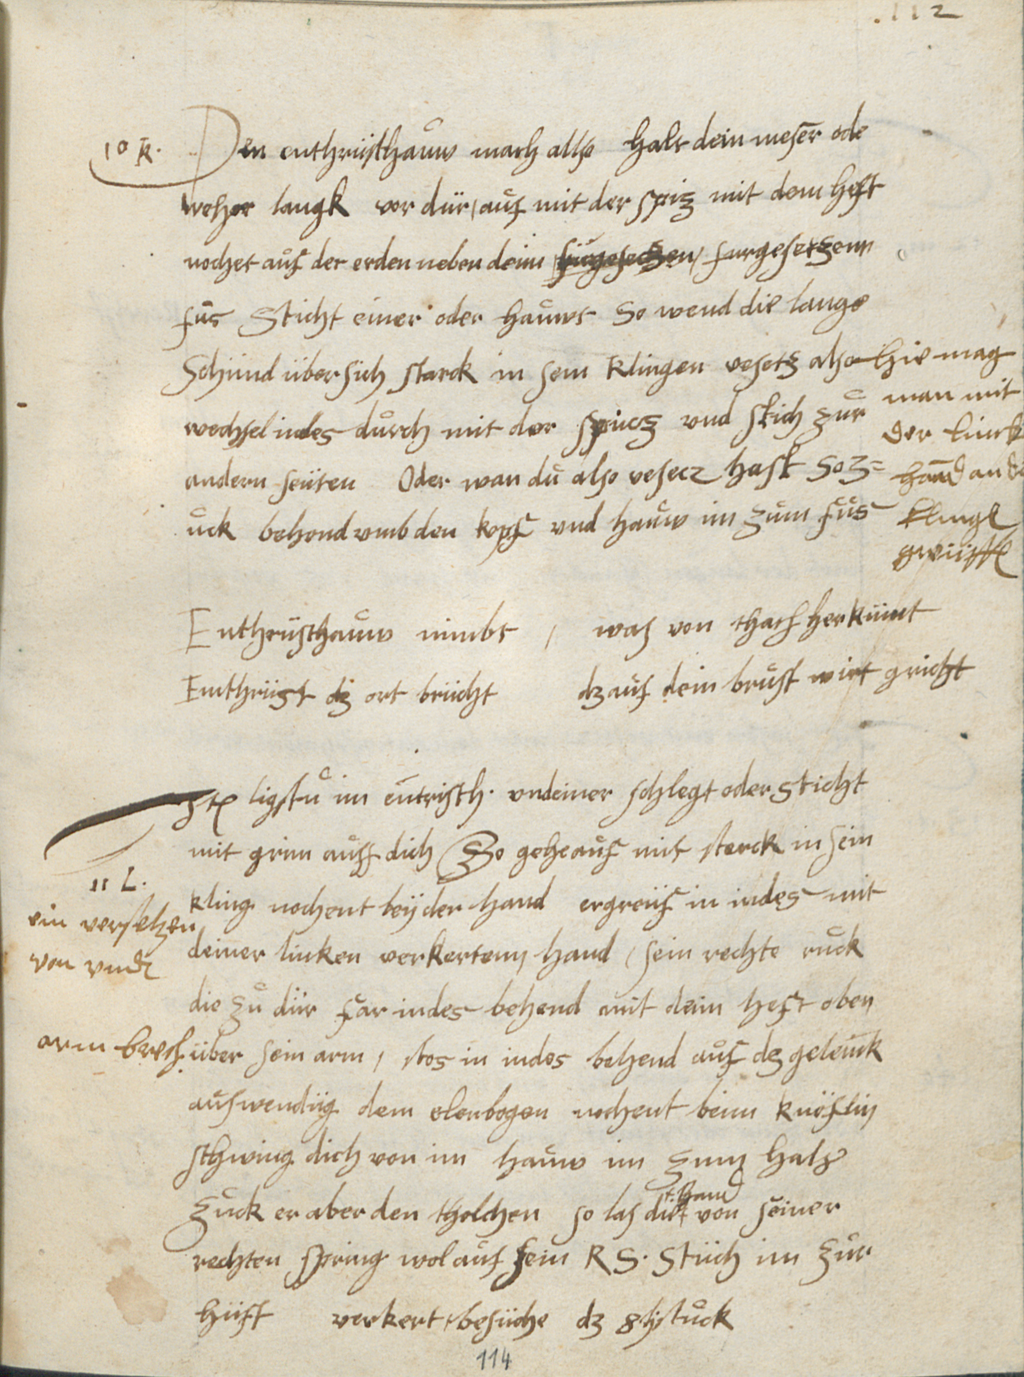 .112
10 k.
Den enthrüsthauw mach also halt dein meser ode
weher langk vor dür, auf mit der spiz mit dem heft
nochet auf der erden neben deim fürgesetzen, furgesetzenn
fus Sticht einer oder hauwt So wend die lange
Schnid übersich starck in sein klingen vesetz also
wechsel indes durch mit der spicz vnd stich zur
andern seiten Oder wan du also vesecz hast So z=
uck behend vmb den kopf vnd hauw im zum fus
hie mag
man mit
der linck
hand an d
klinge
gwüss
Enthrüsthauw nimbt , was von thach herkümt
Emthrüst dz ort brücht dz auf dein brust wirt gricht
Itē ligstu im entristh. vnd einer schlegt oder Sticht
mit grim auff dich So gehe auf mit sterck in sein
11 L.
kling nochent bey der hand ergreif in indes mit
ein versetzen
von vnde
deiner linken verkertenn hand, sein rechte ruck
die zu dür far indes behend mit deim heft oben
arm brech
über sein arm, stos in indes behend auf dz gelenck
auswendig dem elenbogen nochent beim knöflin
schwing dich von im hauw im zum hals
zuck er aber den tholchen so las die l: hand von seiner
rechten spring wol auf sein R S. Stich im zur
hüft verkert, besüche dz 8 h stuck
114